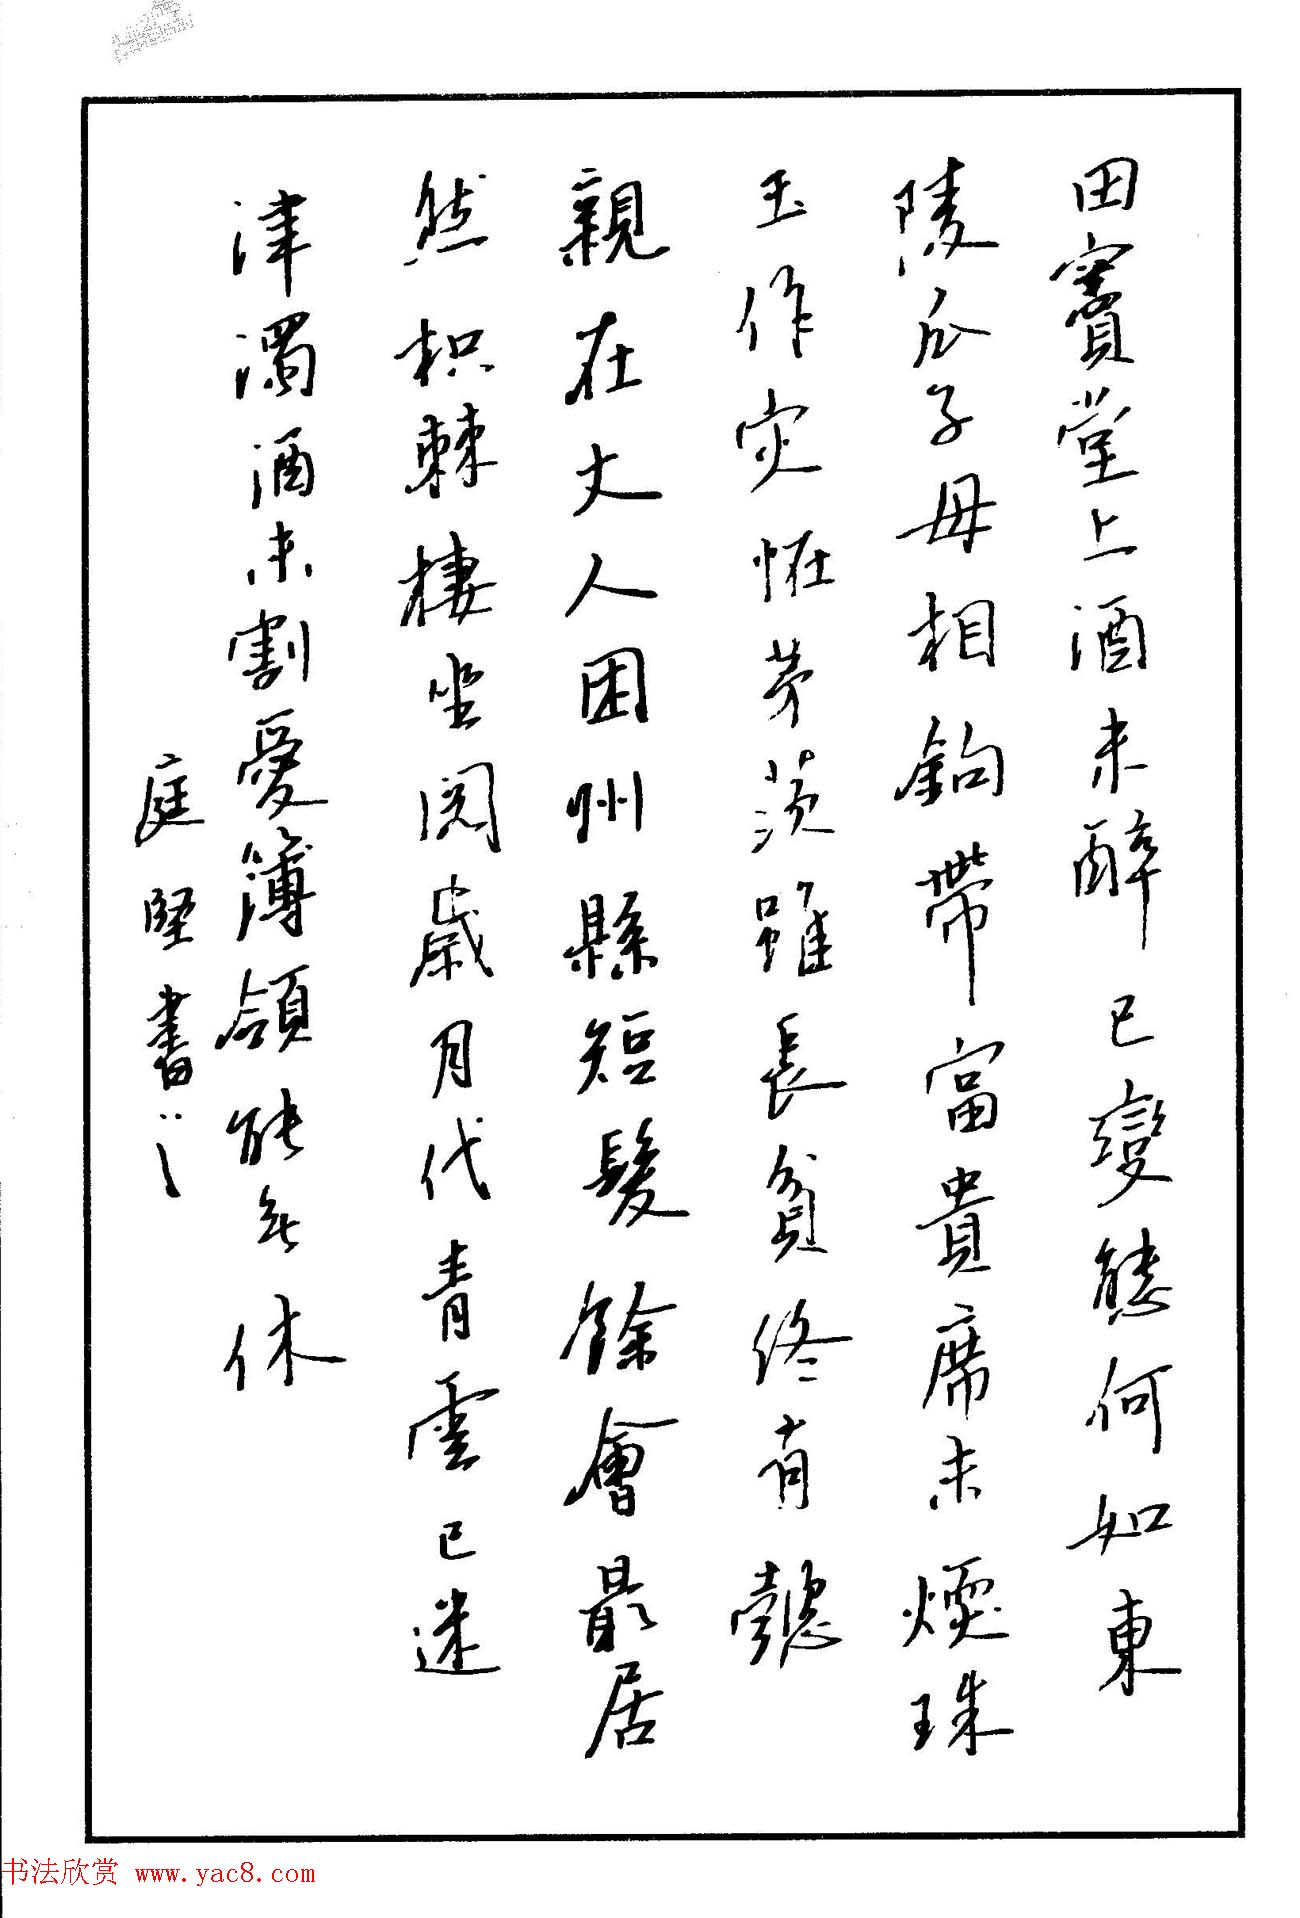 田竇堂上酒未醉已變態何如東
陵瓜子母相鉤帶富貴席未煖珠
玉作灾恠茅茨雖長貧終有懿
親在丈人困州縣短髮餘會最居
然枳棘棲坐閱歲月代青雲已迷
津濁酒未割愛簿領能無休
庭堅書
书法欣赏 www.yac8.com